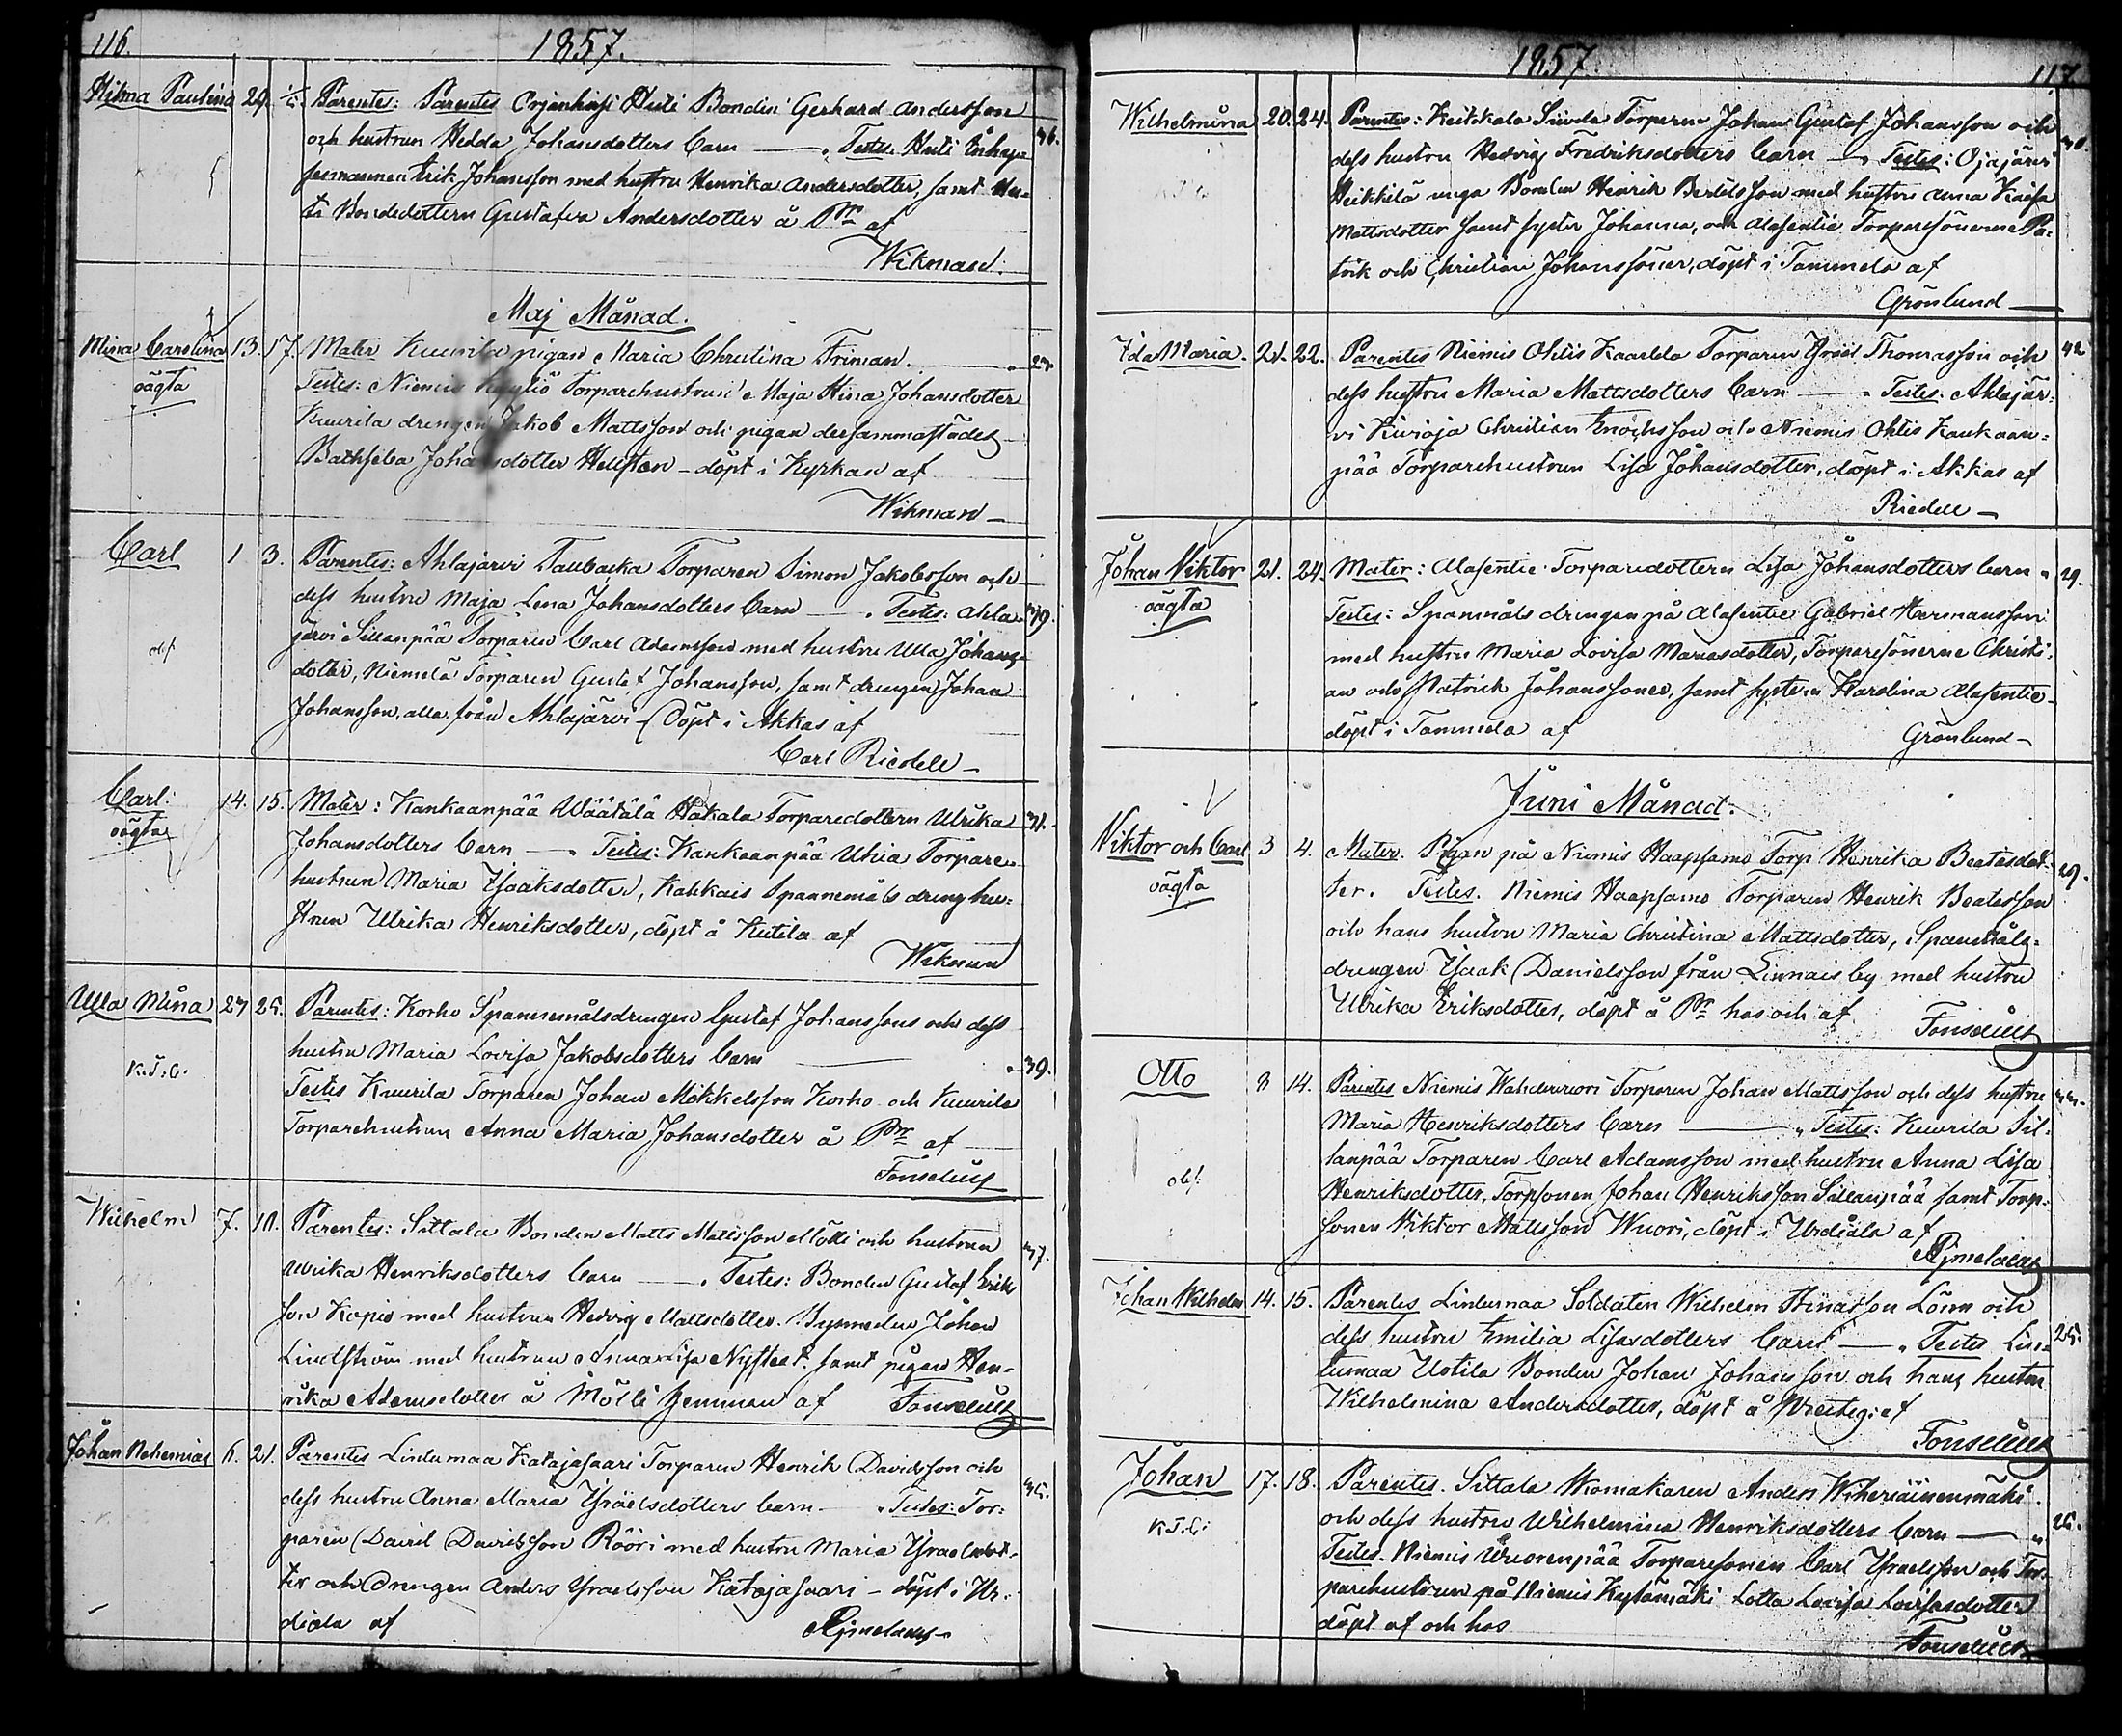 116.
1857.
Hilma Paulina 29. 1/5. Parentes: Parentes Orjenhinsi Huti Bonden Gerhard Andersson 36.
och hustrun Hedda Johansdotters Barn — Testes: Huti Inhys=
Erik Johansson med hustru Henrika Andersdotter, samt Hu=
ti Bondedottern Gustafva Andersdotter å Pr af
Wikman.
Maj Månad.
Mina Carolina 13. 17. Mater Kuurila pigan Maria Christina Friman.
oägta
Testes: Niemis Torparehustrun Maja Stina Johansdotter
Kuurila drengen Jakob Mattsson och pigan dersammastädes
Bathseba Johansdotter Hellsten – döpt i Kyrkan af
Wikman –
Carl 1 3. Parentes: Ahlajärvi Taubacka Torparen Simon Jakobsson och
dess hustru Maja Lena Johansdotters Barn — Testes: Ahla= 39.
järvi Sillanpää Torparen Carl Adamsson med hustru Ulla Johans=
dotter, Niemelä Torparen Gustaf Johansson, samt drengen Johan
Johansson, alla från Ahlajärvi – Döpt i Akkas af
Carl Riedell –
Carl 14. 15. Mater: Kankaanpää Wäätälä Hakala Torparedottern Ulrika 31.
oägta
Johansdotters Barn — Testes: Kankaanpää Uhia Torpare=
hustrun Maria Isaaksdotter, Kahkais Spannemåls dreng hu=
strun Ulrika Henriksdotter, döpt å Kutila af
Wikman
Ulla Mina 23 25. Parentes: Korho Spannemålsdrengen Gustaf Johanssons och dess
hustru Maria Lovisa Jakobsdotters Barn — 39.
K.T.C.
Testes Kuurila Torparen Johan Mikkelsson Korho och Kuurila
Torparehustrun Anna Maria Johansdotter å Pr af
Fonselius
Wilhelm 7. 10. Parentes: Sittala Bonden Matts Mattsson Mölli och hustrun 37.
Ulrika Henriksdotters Barn — Testes: Bonden Gustaf Erik
son Kopio med hustrun Hedvig Mattsdotter. Johan
Lindström med hustrun Anna Lisa Nystedt. samt pigan Hen=
rika Adamsdotter å Mölli hemman af Fonselius
Johan Nehemias 6. 21. Parentes Lintumaa Katajasaari Torparen Henrik Davidsson och 35.
dess hustru Anna Maria Israelsdotters Barn. — Testes: Tor=
paren David Davidsson Rööri med hustru Maria Israelsdot=
ter och Drengen Anders Israelsson Katajasaari – döpt i Ur=
diala af Ajmelaeus
1857
117.
Wilhelmina 20. 24. Parentes: Keikkala Torparen Johan Gustaf Johansson och
dess hustru Hedvig Fredriksdotters Barn — Testes: Ojajärvi
Heikkilä unga Bonden Henrik Bertilsson med hustru Anna Kaisa
Mattsdotter samt syster Johanna, och Alasentie Torparesönerne Pa=
trik och Christian Johanssöner, döpt i Tammela af
Grönlund
Ida Maria. 21. 22. Parentes Niemis Ohtis Kaarlela Torparen Israel Thomasson och 42
dess hustru Maria Mattsdotters Barn — Testes: Ahlajär=
vi Kivioja Christian Enochsson och Niemis Ohtis Kankaan=
pää Torparehustrun Lisa Johansdotter, döpt i Akkas af
Riedell –
Johan Viktor 21. 24. Mater: Alasentie Torparedottern Lisa Johansdotters Barn 29.
oägta
Testes: Spanmåls drengen på Alasentie Gabriel Hermansson
med hustru Maria Lovisa Mariasdotter, Torparesönerne Christi=
an och Patrick Johanssöner, samt systern Karolina Alasentie
döpt i Tammela af Grönlund –
Juni Månad.
Viktor och Carl 3 4. Mater. Pigan på Niemis Haapsamo Torp Henrika Beatesdot= 29.
oägta
ter. Testes. Niemis Haapsamo Torparen Henrik Beatesson
och hans hustru Maria Christina Mattsdotter, Spanmåls=
drengen Isaak Danielsson från Linnais by med hustru
Ulrika Eriksdotter, döpt å Pr hos och af
Fonselius
Otto 8 14. Parentes Niemis Torparen Johan Mattsson och dess hustru
Maria Henriksdotters Barn — Testes: Kuurila Sil=
lanpää Torparen Carl Adamsson med hustru Anna Lisa
Henriksdotter, Torpsonen Johan Henriksson Sillanpää samt Torp=
sonen Viktor Mattsson Wuori, döpt i Urdiala af
Ajmelaeus
Johan Wilhelm 14. 15. Parentes Lintumaa Soldaten Wilhelm Stinasson Lönn och 25.
dess hustru Emilia Lisasdotters Barn — Testes Lin=
tumaa Uotila Bonden Johan Johansson och hans hustru
Wilhelmina Andersdotter, döpt å Presteg: af
Fonselius
Johan 17. 18. Parentes. Sittala Anders Wiheriäisenmäki
K.T.C.
och dess hustru Wilhelmina Henriksdotters Barn — 25.
Testes. Niemis Wuorenpää Torparesonen Carl Israelsson och Tor=
parehustrun på Niemis Kytömäki Lotta Lovisa Lovisasdotter
döpt af och hos
Fonselius